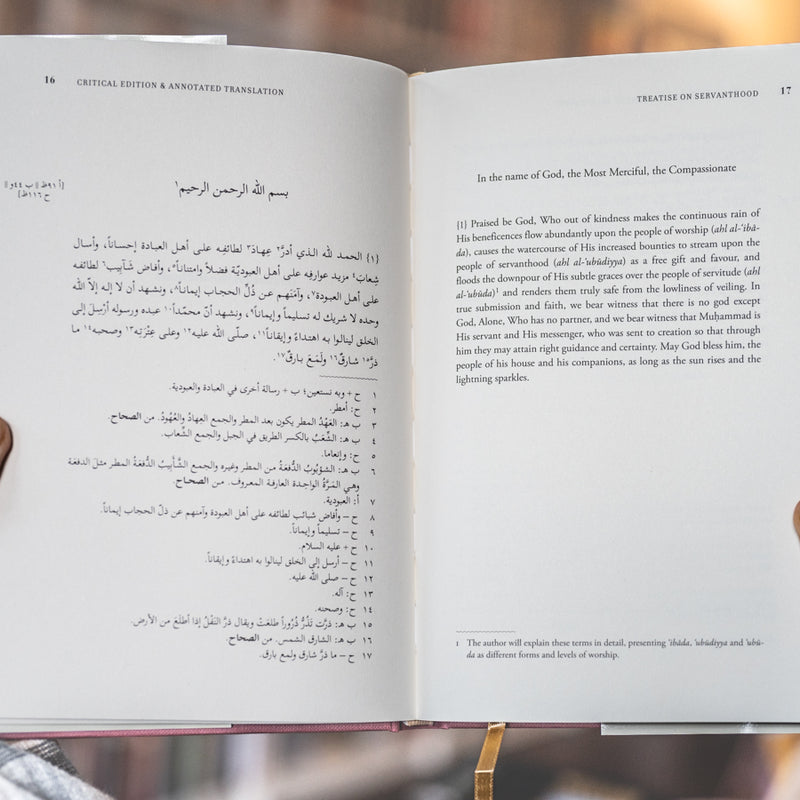 16 CRITICAL EDITION & ANNOTATED TRANSLATION
[أ ٩١ظ || ب ٤٤و ||
ح ١١٦ظ]
بسم الله الرحمن الرحيم١
{١} الحمد لله الذي أدرَّ٢ عِهادَ٣ لطائفِه على أهل العبادة إحساناً، وأسال
شِعابَ٤ مزيد عوارفِه على أهل العبوديّة فضلاً وامتناناً٥، وأفاض شَآبيب٦ لطائفه
على أهل العبودة٧، وآمَنَهم عن ذُلِّ الحجاب إيماناً٨، ونشهد أن لا إله إلّا الله
وحده لا شريك له تسليماً وإيماناً٩، ونشهد أنّ محمّداً١٠ عبده ورسوله أُرْسِلَ إلى
الخلق لينالوا به اهتداءً وإيقاناً١١، صلّى الله عليه١٢ وعلى عِتْرَتِه١٣ وصحبه١٤ ما
ذرَّ١٥ شارقٌ١٦ ولَمَعَ بارقٌ١٧.
١ ح + وبه نستعين؛ ب + رسالة أخرى في العبادة والعبودية.
٢ ح: أمطر.
٣ ب هـ: العَهْدُ المطر يكون بعد المطر والجمع العِهادُ والعُهُودُ. من الصحاح.
٤ ب هـ: الشِّعْبُ بالكسر الطريق في الجبل والجمع الشِّعاب.
٥ ح: وإنعاما.
٦ ب هـ: الشُّؤبُوبُ الدُّفعَةُ من المطر وغيره والجمع الشَّآبِيبُ الدُّفعَةُ المطر مثل الدفعة
وهي المَرَّةُ الواحِدة العارفة المعروف. من الصحاح.
٧ أ: العبودية.
٨ ح – وأفاض شبائب لطائفه على أهل العبودة وآمنهم عن ذلّ الحجاب إيماناً.
٩ ح – تسليماً وإيماناً.
١٠ ح + عليه السلام.
١١ ح – أرسل إلى الخلق لينالوا به اهتداءً وإيقاناً.
١٢ ح – صلى الله عليه.
١٣ ح: آله.
١٤ ح: وصحبته.
١٥ ب هـ: ذرَّت تَذُرُّ ذُرُوراً طلعَتْ ويقال ذرَّ البَقْلُ إذا أطلَعَ من الأرض.
١٦ ب هـ: الشارق الشمس. من الصحاح.
١٧ ح – ما ذرَّ شارق ولمع بارق.
TREATISE ON SERVANTHOOD 17
In the name of God, the Most Merciful, the Compassionate
{1} Praised be God, Who out of kindness makes the continuous rain of
His beneficences flow abundantly upon the people of worship (ahl al-ʿibā-
da), causes the watercourse of His increased bounties to stream upon the
people of servanthood (ahl al-ʿubūdiyya) as a free gift and favour, and
floods the downpour of His subtle graces over the people of servitude (ahl
al-ʿubūda)1 and renders them truly safe from the lowliness of veiling. In
true submission and faith, we bear witness that there is no god except
God, Alone, Who has no partner, and we bear witness that Muḥammad is
His servant and His messenger, who was sent to creation so that through
him they may attain right guidance and certainty. May God bless him, the
people of his house and his companions, as long as the sun rises and the
lightning sparkles.
1 The author will explain these terms in detail, presenting ʿibāda, ʿubūdiyya and ʿubū-
da as different forms and levels of worship.